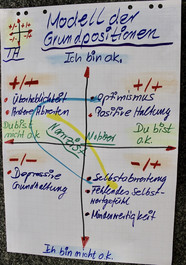 Modell der
Grundpositionen
Ich bin o.k.
+/-
+/+
• Überheblichkeit
• Optimismus
• Positive Haltung
Du bist
nicht o.k.
Du bist
o.k.
-/-
-/+
• Depressive
Grundhaltung
• Selbstabwertung
• Fehlendes Selbst-
wertgefühl
• Minderwertigkeit
Ich bin nicht o.k.